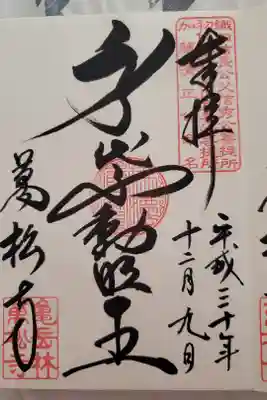 奉拝
平成三十年
十二月九日
身代不動明王
萬松寺
亀岳林
萬松寺